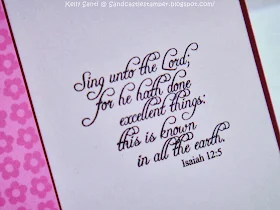 Kelly Sahli @ Sandcastlestamper.blogspot.com/
Sing unto the Lord;
for he hath done
excellent things:
this is known
in all the earth.
Isaiah 12:5